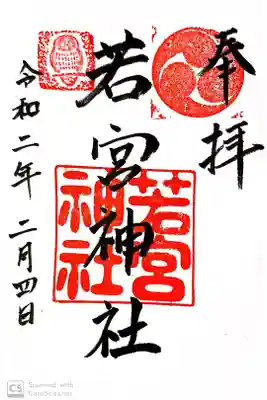 奉拝
若宮神社
若宮
神社
令和二年 二月四日
CS Scanned with
CamScanner